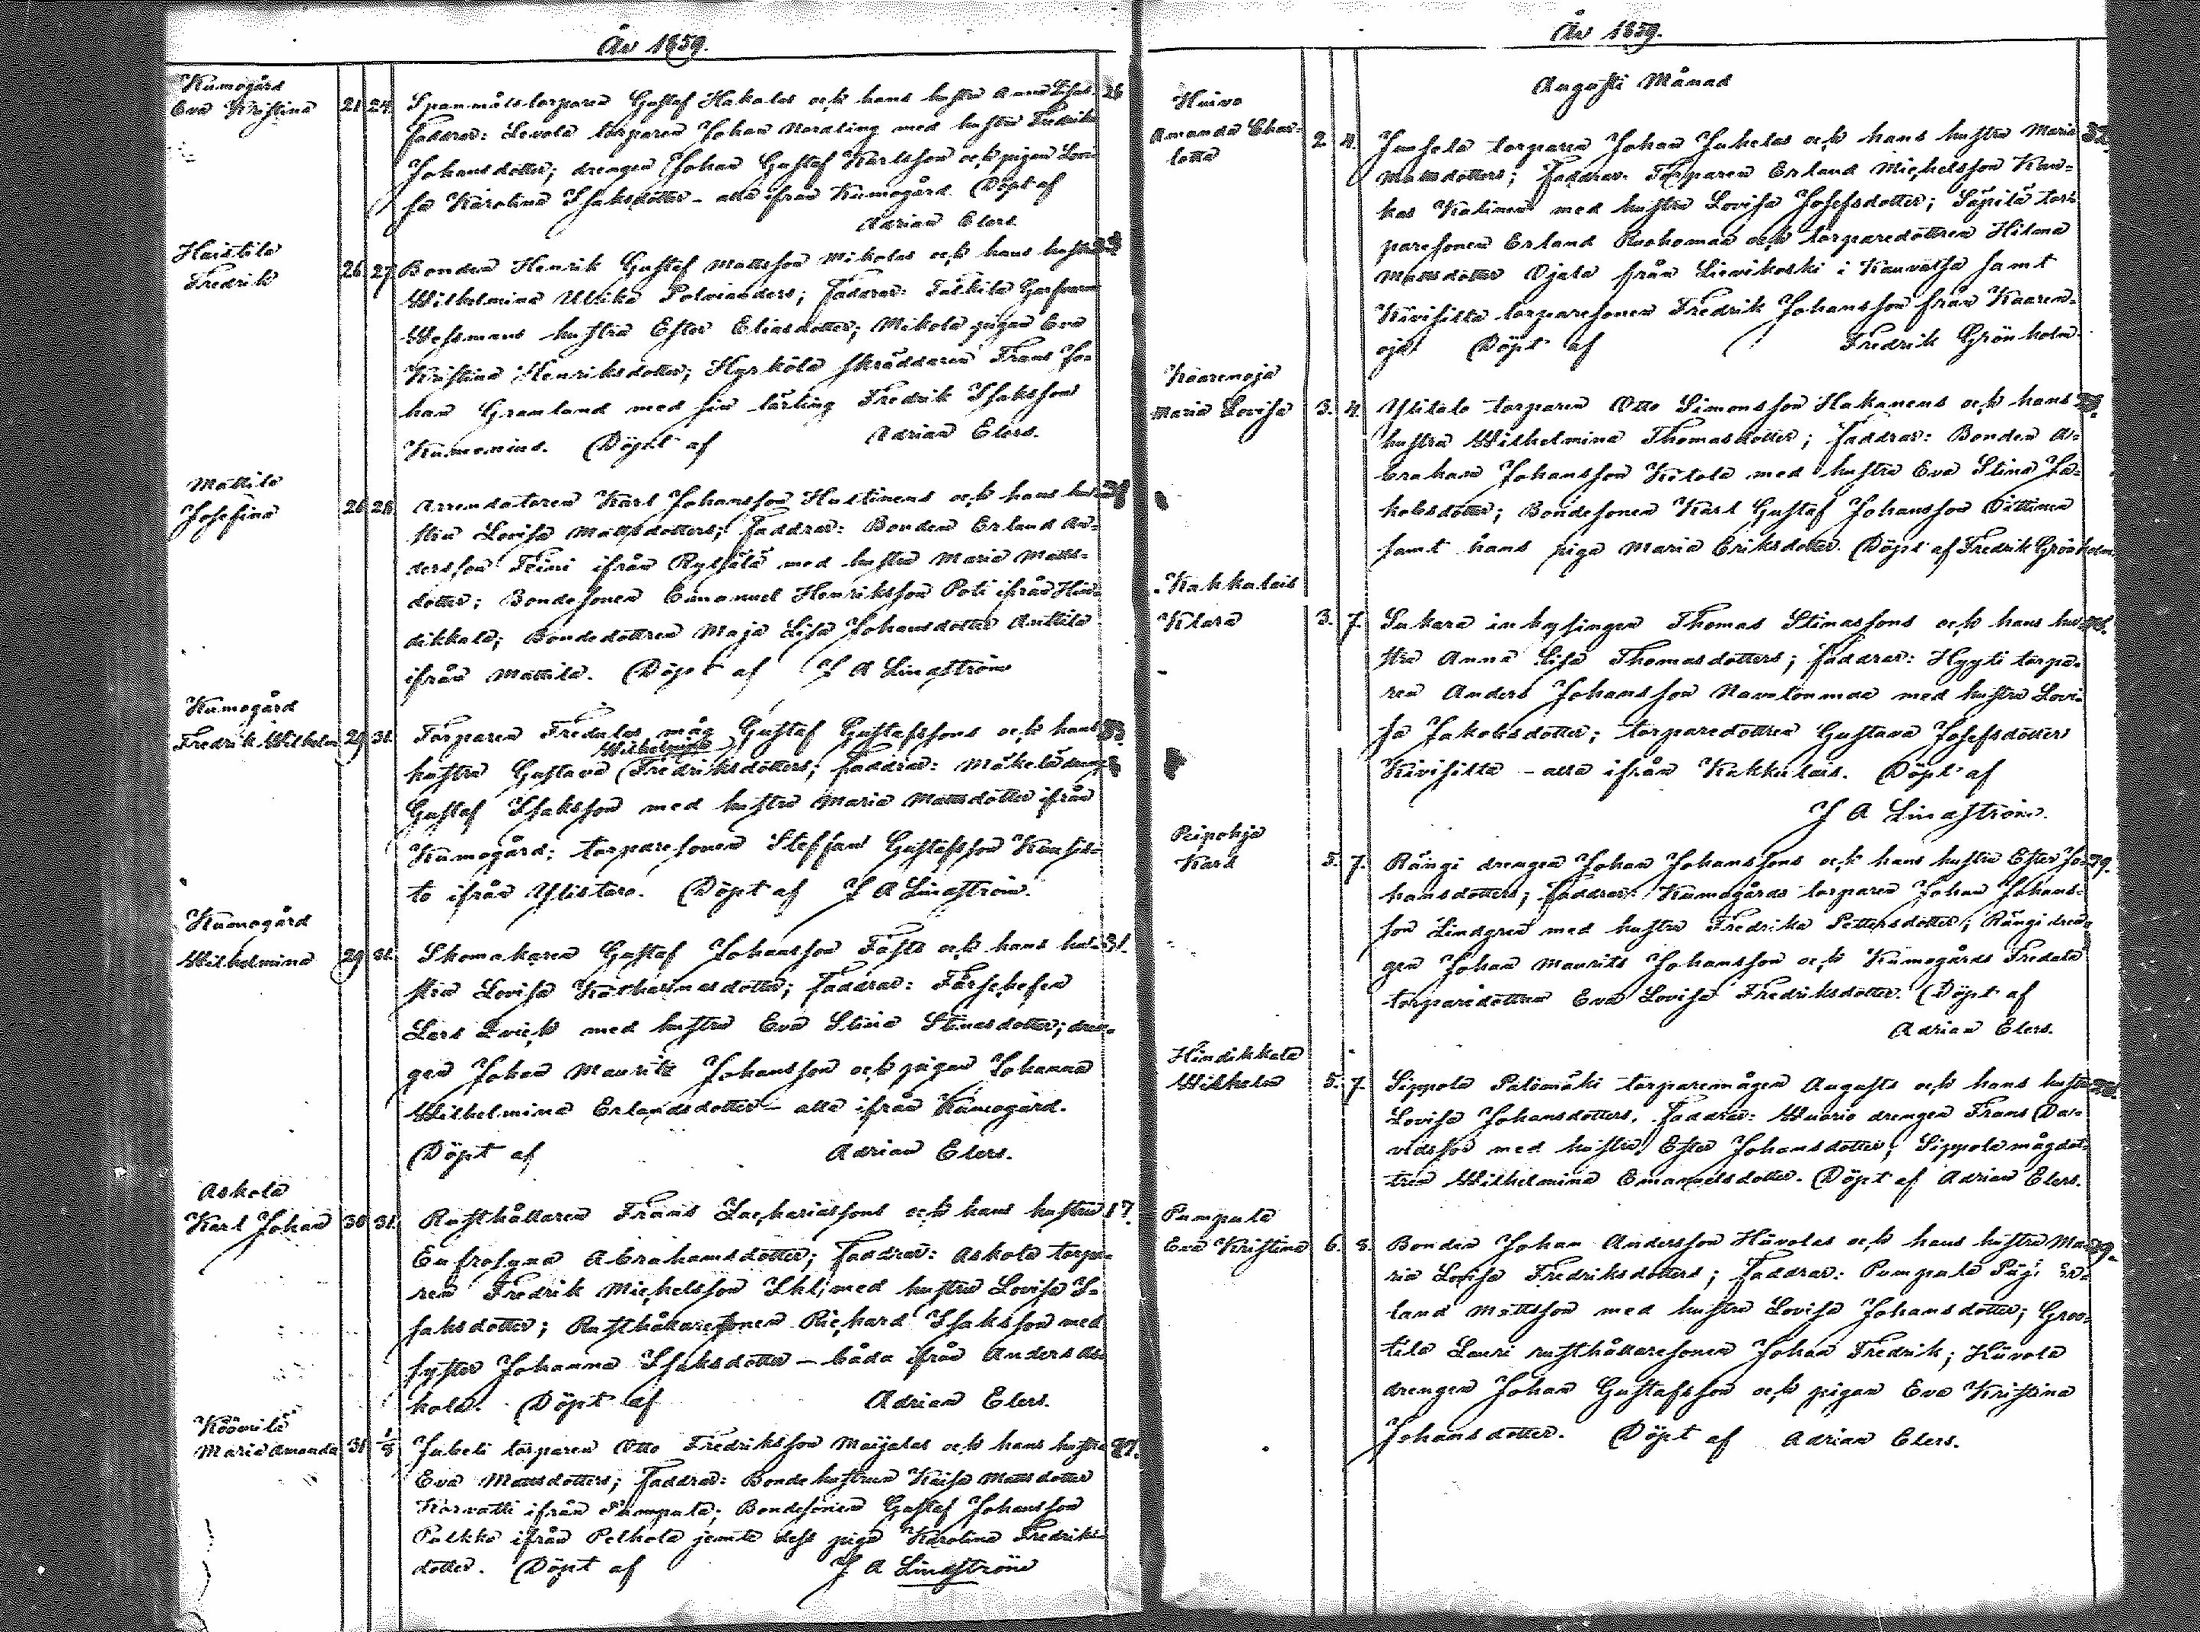 År 1859.
Kumogård
Eva Kristina 21 24. Spannmålstorparen Gustaf Hakalas och hans hustru Anna Lisas 26
Faddrar: Levola torparen Johan Nordling med hustru Fredrika
Johansdotter; drengen Johan Gustaf Karlsson och pigan Lovi-
sa Karolina Isaksdotter – alla ifrån Kumogård. Döpt af
Adrian Elers.
Haistila
Fredrik 26 27 Bonden Henrik Gustaf Mattsson Mikolas och hans hustru
Wilhelmina Ulrika Polvianders; Faddrar:
Wessmans hustru Ester Eliasdotter; Mikola pigan Eva
Kristina Henriksdotter; Hyrkölä skräddaren Frans Jo-
han Granlund med sin lärling Fredrik Isaksson
Kumenius. Döpt af Adrian Elers.
Mattila
Josefina 26 28. Arrendatoren Karl Johansson Huttinens och hans hu-
stru Lovisa Mattsdotters; Faddrar: Bonden Erland An-
dersson ifrån med hustru Maria Matts-
dotter; Bondesonen Emanuel Henriksson Poti ifrån Hin-
dikkala; Bondedottren Maja Lisa Johansdotter Anttila
ifrån Mattila. Döpt af J A Lindström
Kumogård
Fredrik Wilhelm 29 31. Torparen Fredalas måg Gustaf Gustafssons och hans 33
Wilhelmina
hustru Gustava Fredriksdotters; Faddrar: Mäkelä
Gustaf Isaksson med hustru Maria Mattsdotter ifrån
Kumogård; torparesonen Steffan Gustafsson
to ifrån Ylistaro. Döpt af J A Lindström.
Kumogård
Wilhelmina 29 31. Skomakaren Gustaf Johansson och hans hu- 31.
stru Lovisa Katharinasdotter; Faddrar:
Lars Qvick med hustru Eva Stina Stinasdotter; dren-
gen Johan Mauritz Johansson och pigan Johanna
Wilhelmina Erlandsdotter – alla ifrån Kumogård.
Döpt af Adrian Elers.
Askola
Karl Johan 30 31. Rusthållaren Frans Zachariassons och hans hustru 17.
Eufrosyna Abrahamsdotter; Faddrar: Askola torpa-
ren Fredrik Michelsson med hustru Lovisa I-
saksdotter; Rusthållaresonen Richard Isaksson med
syster Johanna Isaksdotter – båda ifrån Anders As-
kola. Döpt af Adrian Elers.
Köövrilä
Maria Amanda 31 1/8 Juheli torparen Otto Fredriksson Maijalas och hans hustru 27.
Eva Mattsdotters; Faddrar: Bondehustrun Kaisa Mattsdotter
Karvatti ifrån Pumpula; Bondesonen Gustaf Johansson
Pulkka ifrån Pelhola jemte dess piga Karolina Fredriks-
dotter. Döpt af J A Lindström
År 1859.
Augusti Månad
Huivo
Amanda Char-
lotta 2. 4. Junsola torparen Johan Juhelas och hans hustru Maria 32.
Mattsdotters; Faddrar: Torparen Erland Michelsson
Katinen med hustru Lovisa Josefsdotter; Säpilä tor-
paresonen Erland Ruohomaa och torparedottren Hilma
Mattsdotter Ojala från Lievikoski i Kauvatsa samt
Kivisilta torparesonen Fredrik Johansson från Kaaren-
oja. Döpt af Fredrik Grönholm.
Kaarenoja
Maria Lovisa 3. 4. Ylitalo torparen Otto Simonsson Hakanens och hans
hustru Wilhelmina Thomasdotter; Faddrar: Bonden A-
braham Johansson Kitola med hustru Eva Stina Ja-
kobsdotter; Bondesonen Karl Gustaf Johansson
samt hans piga Maria Eriksdotter. Döpt af Fredrik Grönholm.
Kakkulais
Klara 3. 7. Sukara inhysingen Thomas Stinassons och hans hu-
stru Anna Lisa Thomasdotters; Faddrar: Hyyti torpa-
ren Anders Johansson med hustru Lovi-
sa Jakobsdotter; torparedottren Gustava Josefsdotter
Kivisilta – alla ifrån Kakkulais. Döpt af
J A Lindström.
Peipohja
Karl 5. 7. Rängi drengen Johan Johanssons och hans hustru Ester Jo- 29.
hansdotters; Faddrar: Kumogårds torparen Johan Johans-
son Lindgren med hustru Fredrika Pettersdotter; Rängi dren-
gen Johan Maurits Johansson och Kumogårds Fredala
torparedottren Eva Lovisa Fredriksdotter. Döpt af
Adrian Elers.
Hindikkala
Wilhelm 5. 7. Sippola Palomäki torparemågen Augusts och hans hustru
Lovisa Johansdotters. Faddrar: Wuorio drengen Frans Da-
vidsson med hustru Ester Johansdotter; Sippola mågdot-
tren Wilhelmina Emanuelsdotter. Döpt af Adrian Elers.
Pumpula
Eva Kristina 6. 8. Bonden Johan Andersson Hüvolas och hans hustru Ma- 29.
ria Lovisa Fredriksdotters; Faddrar: Pumpula Er-
land Mattsson med hustru Lovisa Johansdotter;
tila Lauri rusthållaresonen Johan Fredrik; Hüvola
drengen Johan Gustafsson och pigan Eva Kristina
Johansdotter. Döpt af Adrian Elers.